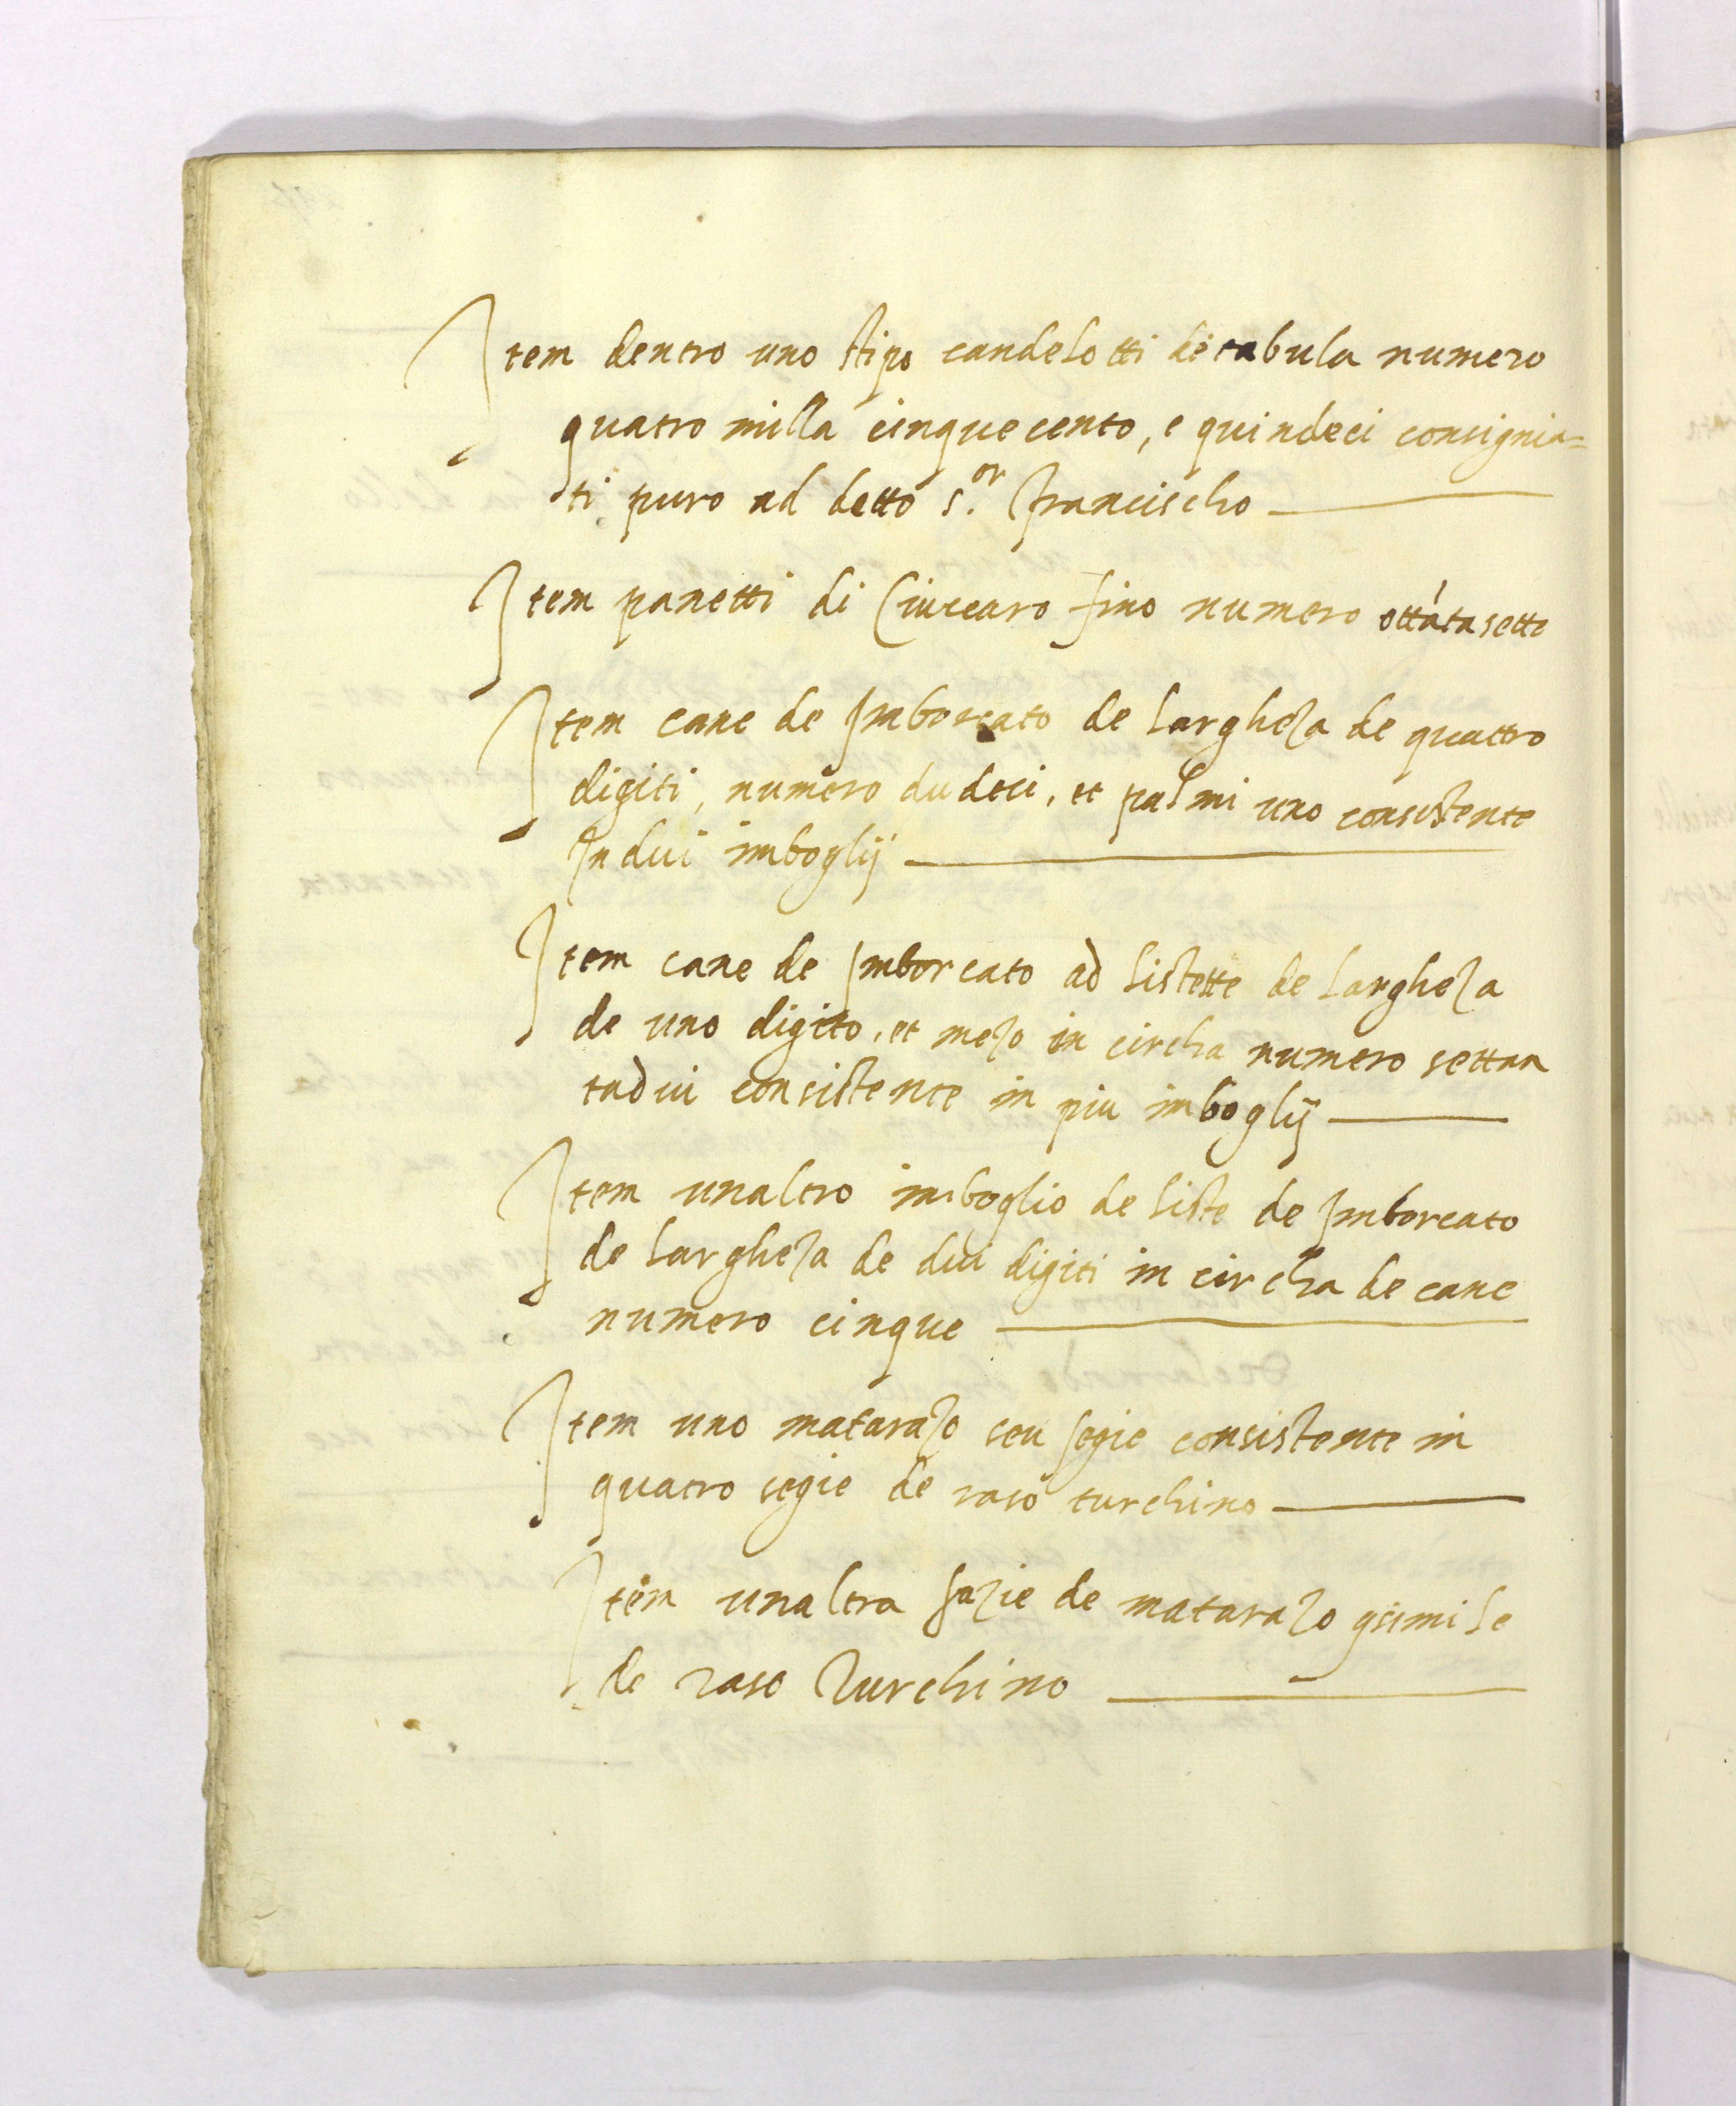 Item dentro uno stipo candelotti de tabula numero
quatro milla cinquecento, e quindeci consignia=
ti puro ad detto s.or francischo
Item panetti di Ciuccaro fino numero ottátasette
Item cane de Imborcato de largheza de quattro
digiti, numero dudeci, et palmi uno consistente
In dui imboglij
Item cane de Imborcato ad listette de largheza
de uno digito, et mezo in circha numero settan
tadui consistente in piu imboglij
Item unaltro imboglio de liste de Imborcato
de largheza de dui digiti in circha de cane
numero cinque
Item uno matarazo seu segie consistente in
quatro segie de raso turchino
Item unaltra sazie de matarazo
de raso Turchino